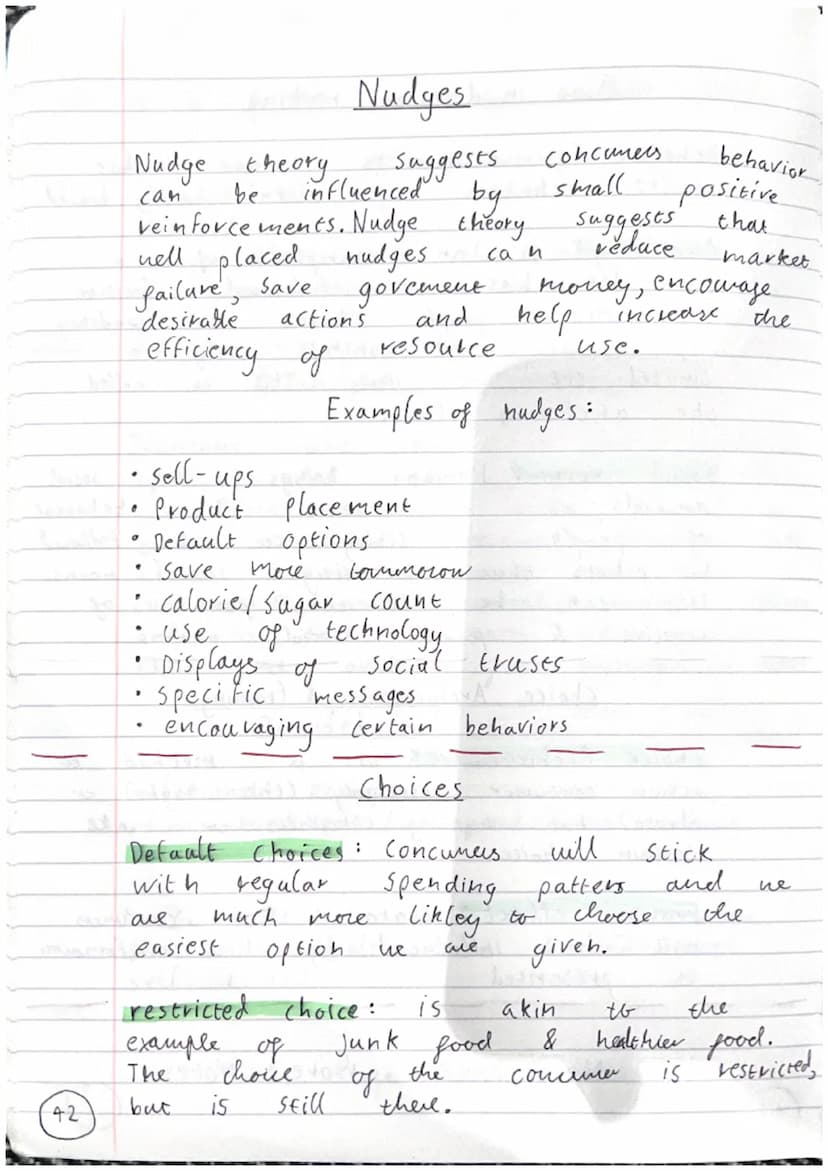 Nudges
Nudge theory suggests concumers behavior
can be influenced by small positive
reinforcements. Nudge theory suggests that
well placed nudges can reduce market
failure, save goverment money, encourage
desirable actions and help increase the
efficiency of resource use.
Examples of nudges:
• Sell-ups
• Product placement
• Default options
• Save more
• calorie/sugar count
• use of technology
• Displays of social trusts
• Specific messages
• encouraging certain behaviors
Choices
Default choices: Concumers will stick
with regular spending patters and we
are much more likley to choose the
easiest option we are given.
restricted choice: is akin to the
example of junk food & healthier food.
The choice of the concumer is restricted,
but is still there.
42